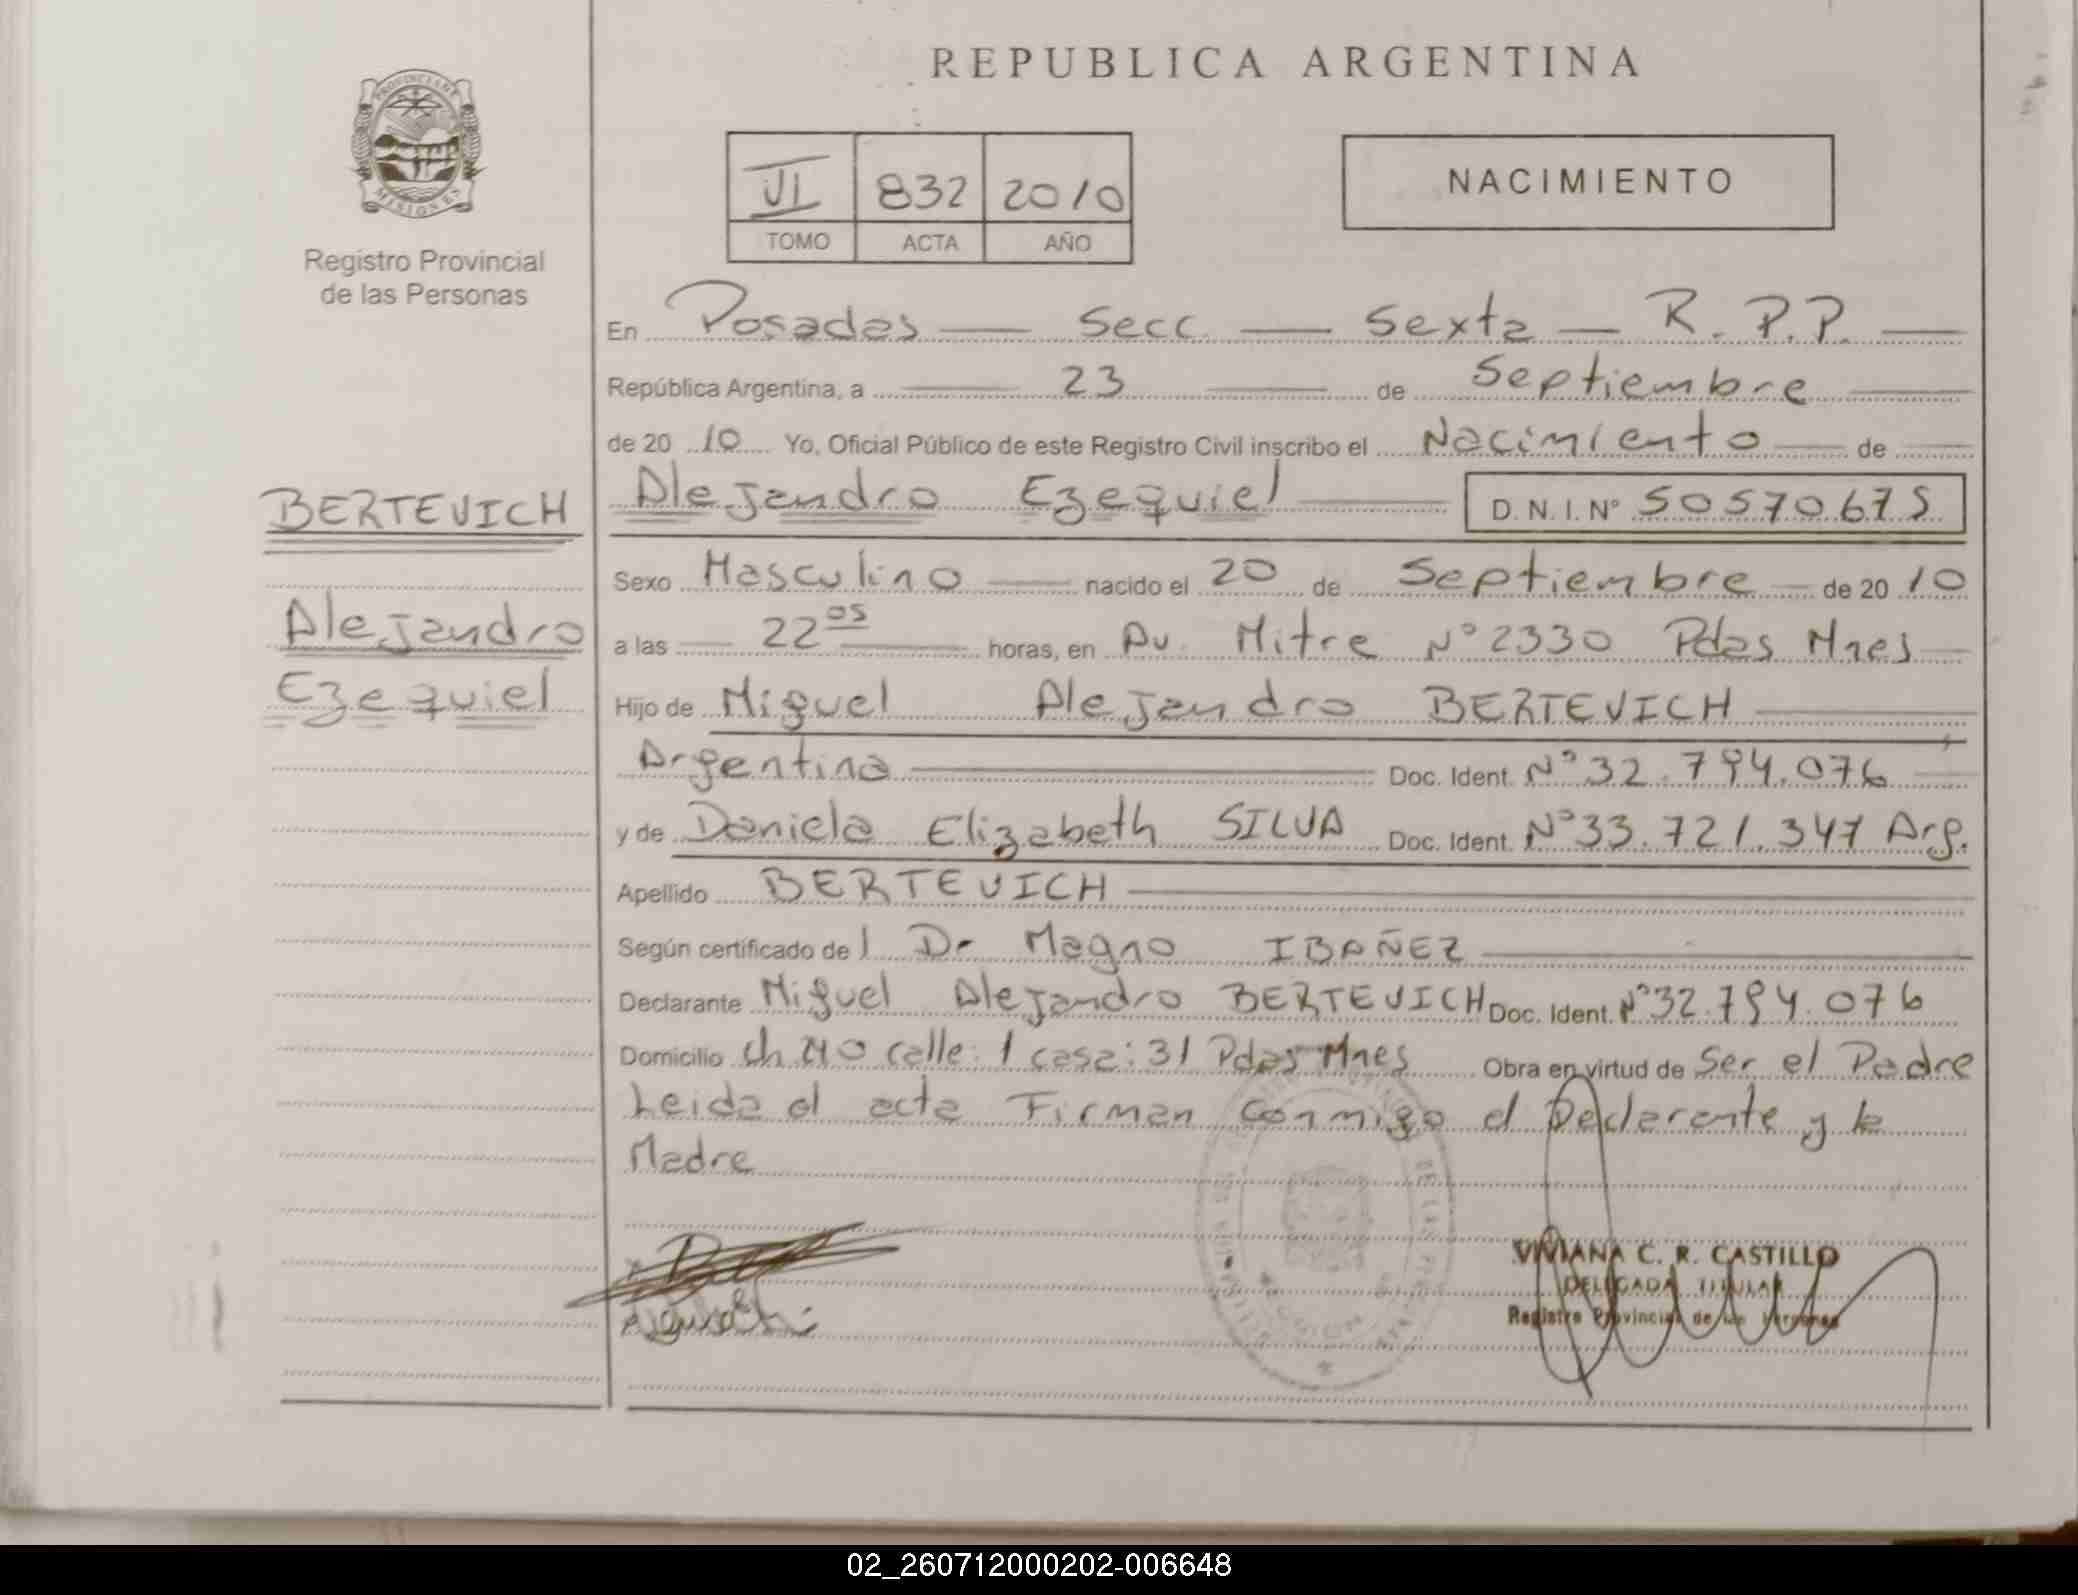 REPUBLICA ARGENTINA
PROVINCIA DE
MISIONES
Registro Provincial
de las Personas
VI 832 2010
TOMO ACTA AÑO
NACIMIENTO
En Posadas Secc. Sexta R.P.P.
República Argentina, a 23 de Septiembre
de 20 10 Yo, Oficial Público de este Registro Civil inscribo el Nacimiento de
BERTEVICH
Alejandro Ezequiel D.N.I. Nº 50570675
Sexo Masculino nacido el 20 de Septiembre de 20 10
Alejandro
Ezequiel
a las 22 05 horas, en Av. Mitre Nº 2330 Pdas Mnes
Hijo de Miguel Alejandro BERTEVICH
Argentino Doc. Ident. Nº 32.794.076
y de Daniela Elizabeth SILVA Doc. Ident. Nº 33.721.347 Arg.
Apellido BERTEVICH
Según certificado de l Dr Magno IBAÑEZ
Declarante Miguel Alejandro BERTEVICH Doc. Ident. Nº 32.794.076
Domicilio calle: 1 casa: 31 Pdas Mnes Obra en virtud de Ser el Padre
Leida el acta Firman Conmigo el Declarante y la
Madre
VIVIANA C. R. CASTILLO
DELEGADA TITULAR
Registro Provincial de las Personas
02_260712000202-006648